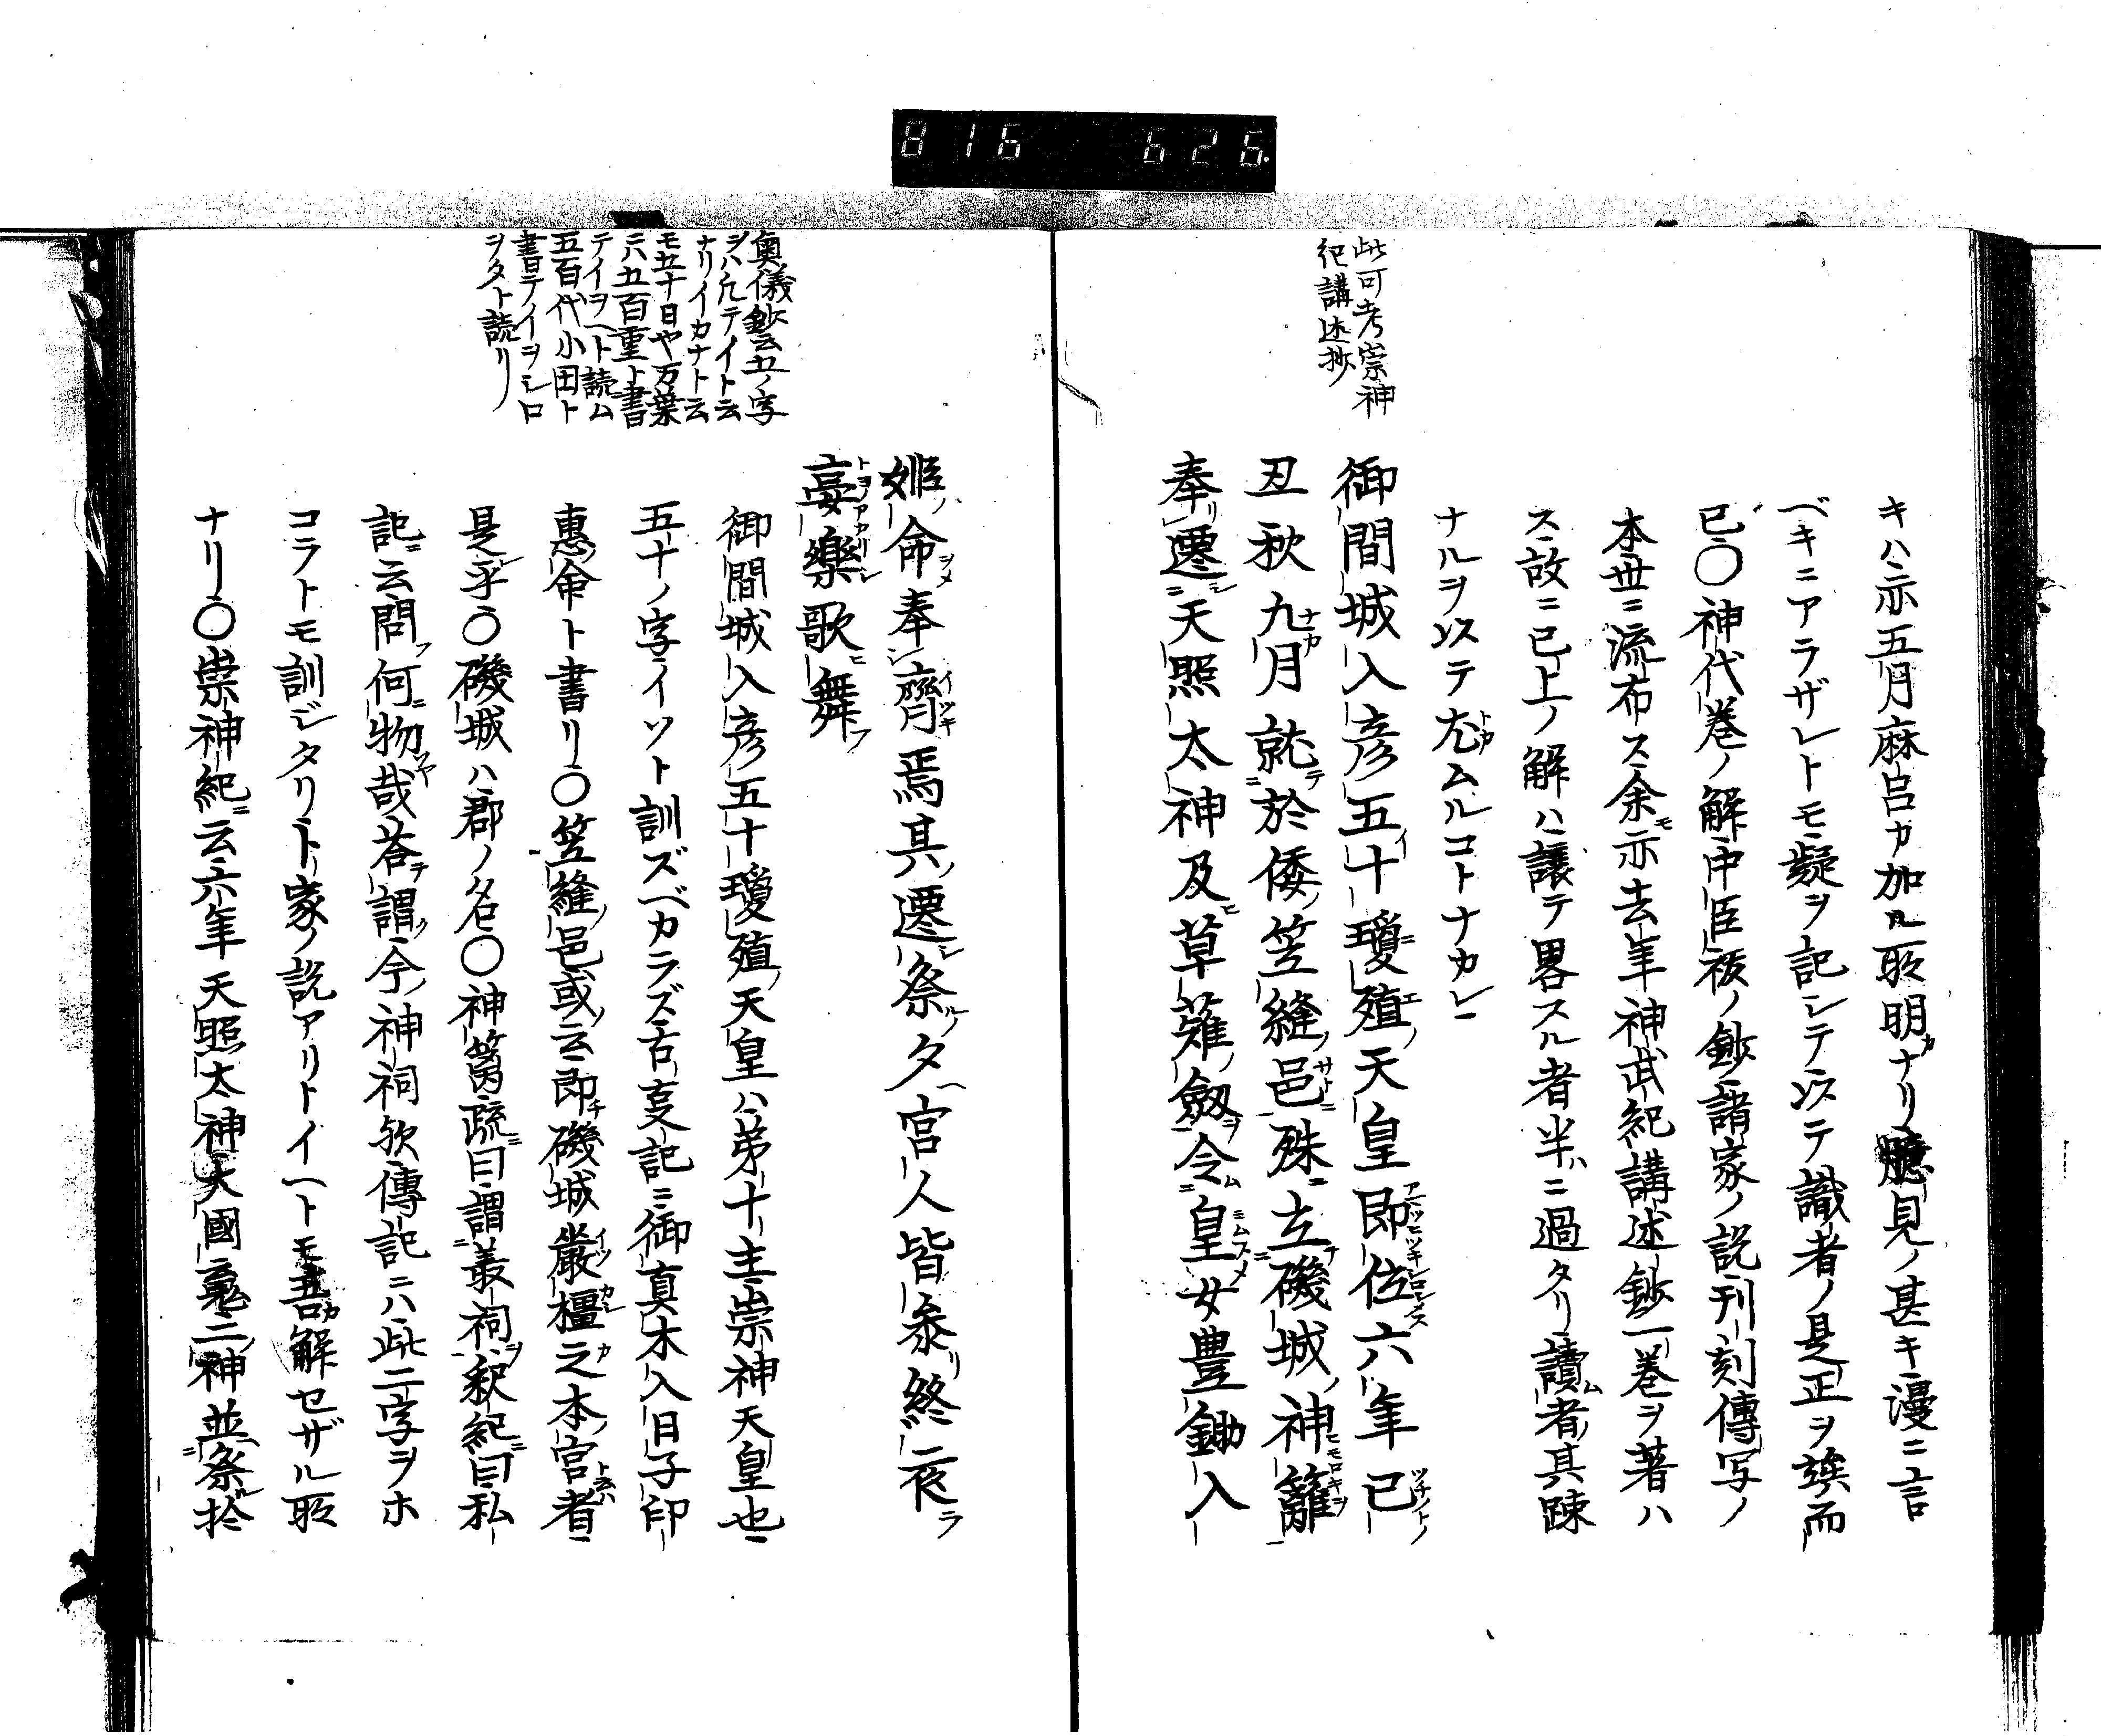 816 626
此可考崇神
紀講述抄
キハ亦五月麻呂カ加ル所明カナリ臆見ノ甚キ漫ニ言
ベキニアラザレトモ疑ヲ記シテ以テ識者ノ是正ヲ竢而
已〇神代巻ノ解中臣祓ノ鈔諸家ノ説刊刻傳写ノ
本世ニ流布ス余モ亦去年神武紀講述鈔一巻ヲ著ハ
ス故ニ已上ノ解ハ譲テ畧スル者半ハニ過タリ讀ム者其踈
ナルヲ以テ尤ムルコトナカレ
御間城入彦五十瓊殖天皇即位六年己
丑秋九月就於倭ノ笠縫邑殊立磯城神籬
奉遷天照太神及草薙劔令皇女豊鋤入
姫命奉齋焉其遷祭夕宮人皆参終夜
宴樂歌舞
御間城入彦五十瓊殖天皇ハ第十主崇神天皇也
五十ノ字イソト訓ズベカラズ古事記ニ御真木入日子印
惠命ト書リ〇笠縫ノ邑或云即チ磯城嚴橿之本宮者
是乎〇磯城ハ郡ノ名〇神籬疏ニ曰謂叢祠釈紀ニ曰私
記ニ云問フ何物哉荅テ謂今ノ神祠欤傳記ニハ此二字ヲホ
コラトモ訓ジタリト家ノ説アリトイヘトモ吾カ解セザル所
ナリ〇崇神紀ニ云六年天照太神大國魂二神並祭於
奥儀鈔云五ノ字
ヲハ凡テイト云
ナリイカナト云
モ五十日ヤ万葉
ニハ五百重ト書
テイヲヘト読ム
五百代小田ト
書テイヲシロ
ヲタト読リ